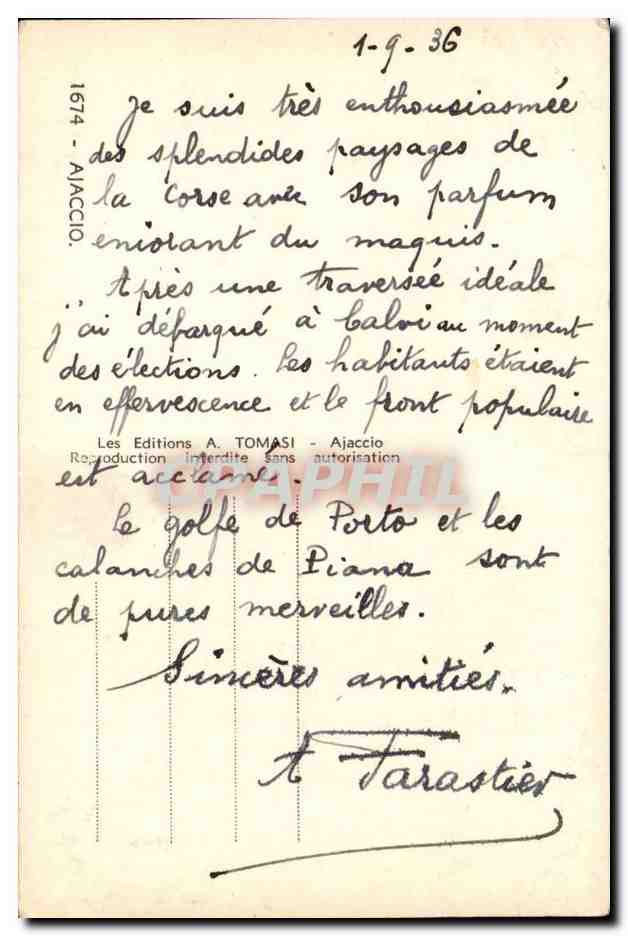 1-9-36
1674 - AJACCIO.
Je suis très enthousiasmée
des splendides paysages de
la Corse avec son parfum
eniorant du maquis.
Après une traversée idéale
j'ai débarqué à Calvi au moment
des élections. Les habitants étaient
en effervescence et le front populaire
Les Editions A. TOMASI - Ajaccio
Reproduction interdite sans autorisation
est acclamé.
CPAPHIL
Le golfe de Porto et les
calanches de Piana sont
de pures merveilles.
Sincères amitiés.
A Tarastier